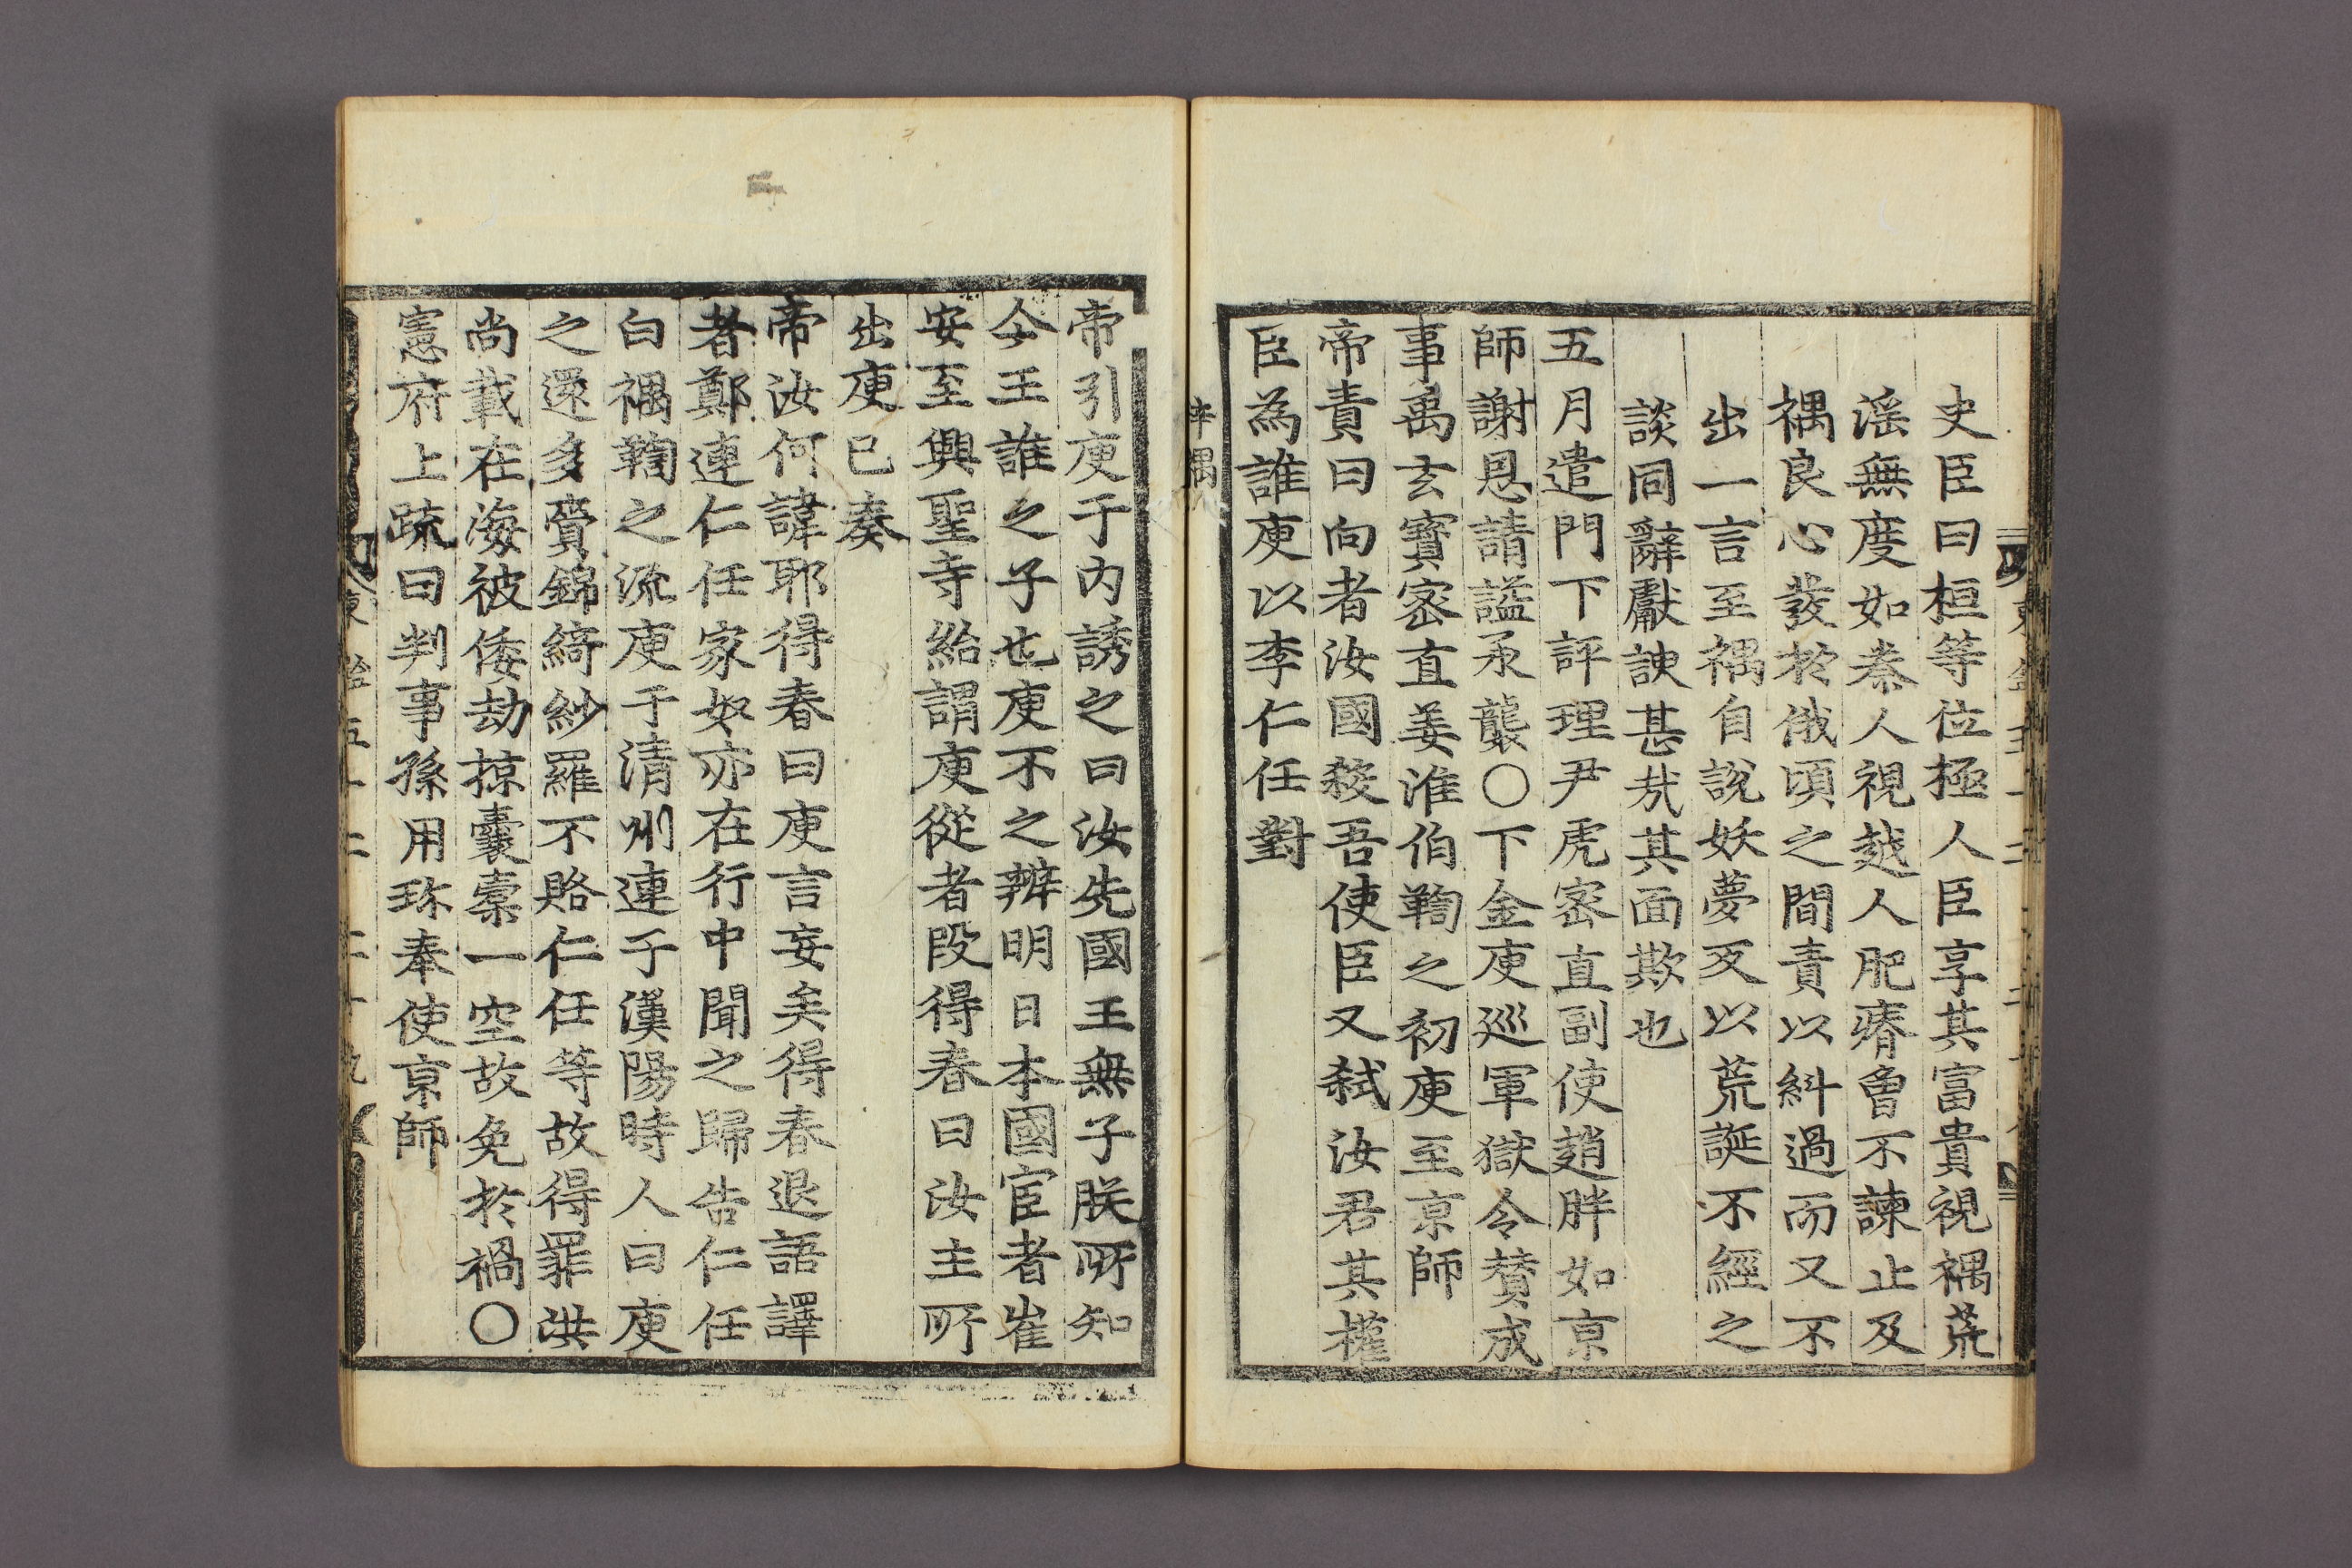 史臣曰桓等位極人臣享其富貴視禑荒
滛無度如秦人視越人肥瘠曾不諫止及
禑良心發於俄頃之間責以糾過而又不
出一言至禑自說妖夢反以荒誕不經之
談同辭獻諛甚㢤其面欺也
五月遣門下評理尹虎密直副使趙胖如京
師謝恩請謚承襲○下金庾巡軍獄令贊成
事禹玄寳密直姜淮伯鞫之初庾至京師
帝責曰向者汝國殺吾使臣又弑汝君其權
臣為誰庾以李仁任對
辛禑
帝引庾于内誘之曰汝先國王無子朕所知
今王誰之子也庾不之辨明日本國宦者崔
安至興聖寺紿謂庾從者段得春曰汝主所
出庾已奏
帝汝何諱耶得春曰庾言妄矣得春退語譯
者鄭連仁任家奴亦在行中聞之歸告仁任
白禑鞫之流庾于清州連于漢陽時人曰庾
之還多賫錦綺紗羅不賂仁任等故得罪洪
尚載在海被倭劫掠囊槖一空故免於禍○
憲府上䟽曰判事孫用珎奉使京師